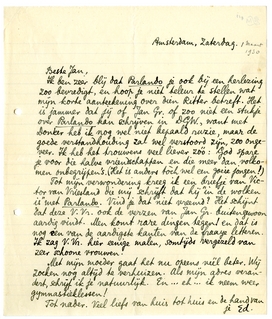 Amsterdam, Zaterdag, 1 Maart
1930
Beste Jan,
Ik ben zeer blij dat Parlando je ook bij een herlezing
zoo bevredigt, en hoop je niet teleur te stellen wat
mijn korte aanteekening over den Ritter betreft. Het
is jammer dat jij of Jan Gr. of zoo niet een stukje
over Parlando kan schrijven in D.G.W., want met
Donker heb ik nog wel niet bepaald ruzie, maar de
goede verstandhouding zal wel verstoord zijn, zoo onge-
veer. Ik heb het trouwens veel liever zóó: God spare
je voor die halve vriendschappen en die meer dan volko-
men onbegrijpen. (Het is anders toch wel een goeie jongen!)
Tot mijn verwondering kreeg ik een briefje van Vic-
tor van Vriesland die mij schrijft dat hij in de wolken
is met Parlando. Vind je dat niet vreemd? Het schijnt
dat deze V. Vr. ook de verzen van Jan Gr. buitengewoon
aardig vindt. Men komt rare dingen tegen, en dit is
nog een van de aardigste kanten van de fraaije letteren.
Ik zag V. Vr. hier eenige malen, omtijds vergezeld van
zeer schoone vrouwen.
Met mijn moeder gaat het nu opeens veel beter. Wij
zoeken nog altijd te verhuizen. Als mijn adres veran-
dert, schrijf ik je natuurlijk. En ... eh... ik neem weer
gymnastieklessen!
Tot nader. Veel liefs van huis tot huis en de hand van
je Ed.